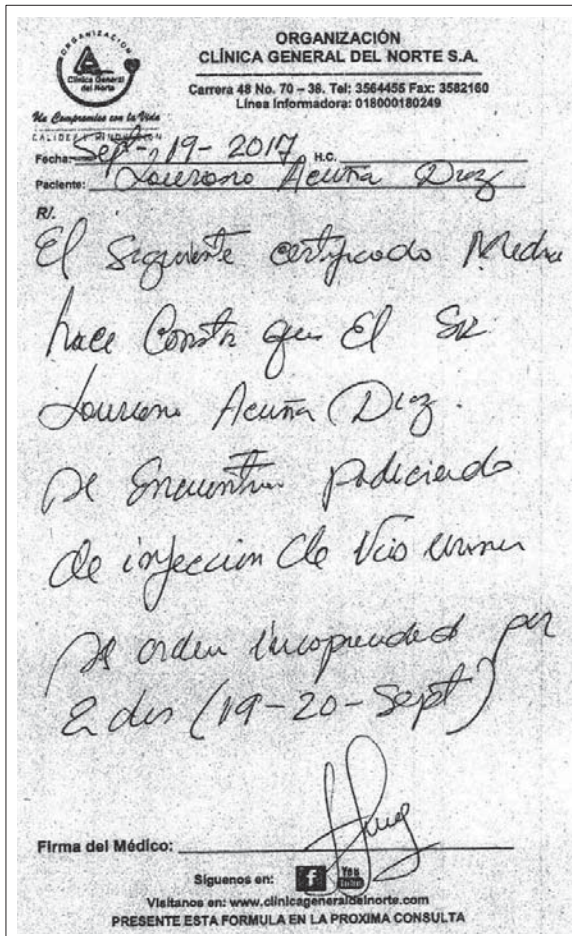 ORGANIZACIÓN
Clínica General
del Norte
Un Compromiso con la Vida
ORGANIZACIÓN
CLÍNICA GENERAL DEL NORTE S.A.
Carrera 48 No. 70 – 38. Tel: 3564455 Fax: 3582160
Línea Informadora: 018000180249
Fecha: Sept-19-2017 H.C.
Paciente: Laureano Acuña Diaz
R/.
El Siguiente certificado Medico
hace Constar que El Sr
Laureano Acuña Diaz.
se Encuentra padeciendo
de infeccion de Vias
se orden incapacidad por
2 dias (19-20-Sept)
Firma del Médico:
Síguenos en: f You Tube
Visítanos en: www.clinicageneraldelnorte.com
PRESENTE ESTA FORMULA EN LA PROXIMA CONSULTA